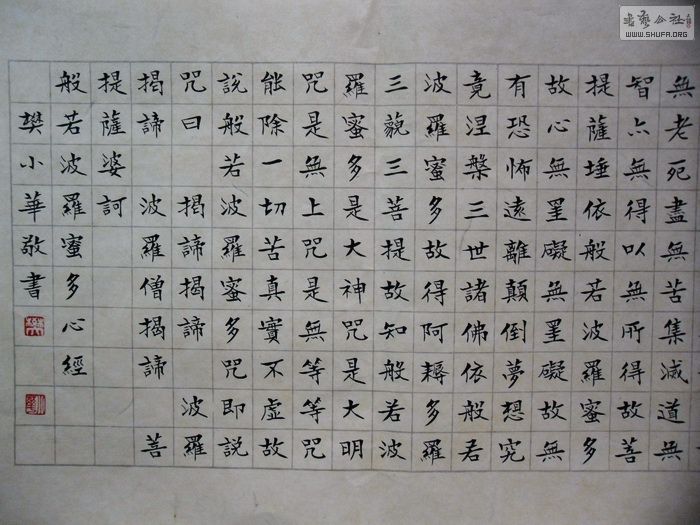 無老死盡無苦集滅道無
智亦無得以無所得故菩
提薩埵依般若波羅蜜多
故心無罣礙無罣礙故無
有恐怖遠離顛倒夢想究
竟涅槃三世諸佛依般若
波羅蜜多故得阿耨多羅
三藐三菩提故知般若波
羅蜜多是大神咒是大明
咒是無上咒是無等等咒
能除一切苦真實不虛故
說般若波羅蜜多咒即說
咒曰 揭諦揭諦 波羅
揭諦 波羅僧揭諦 菩
提薩婆訶
般若波羅蜜多心經
樊小華敬書
書藝公社
WWW.SHUFA.ORG